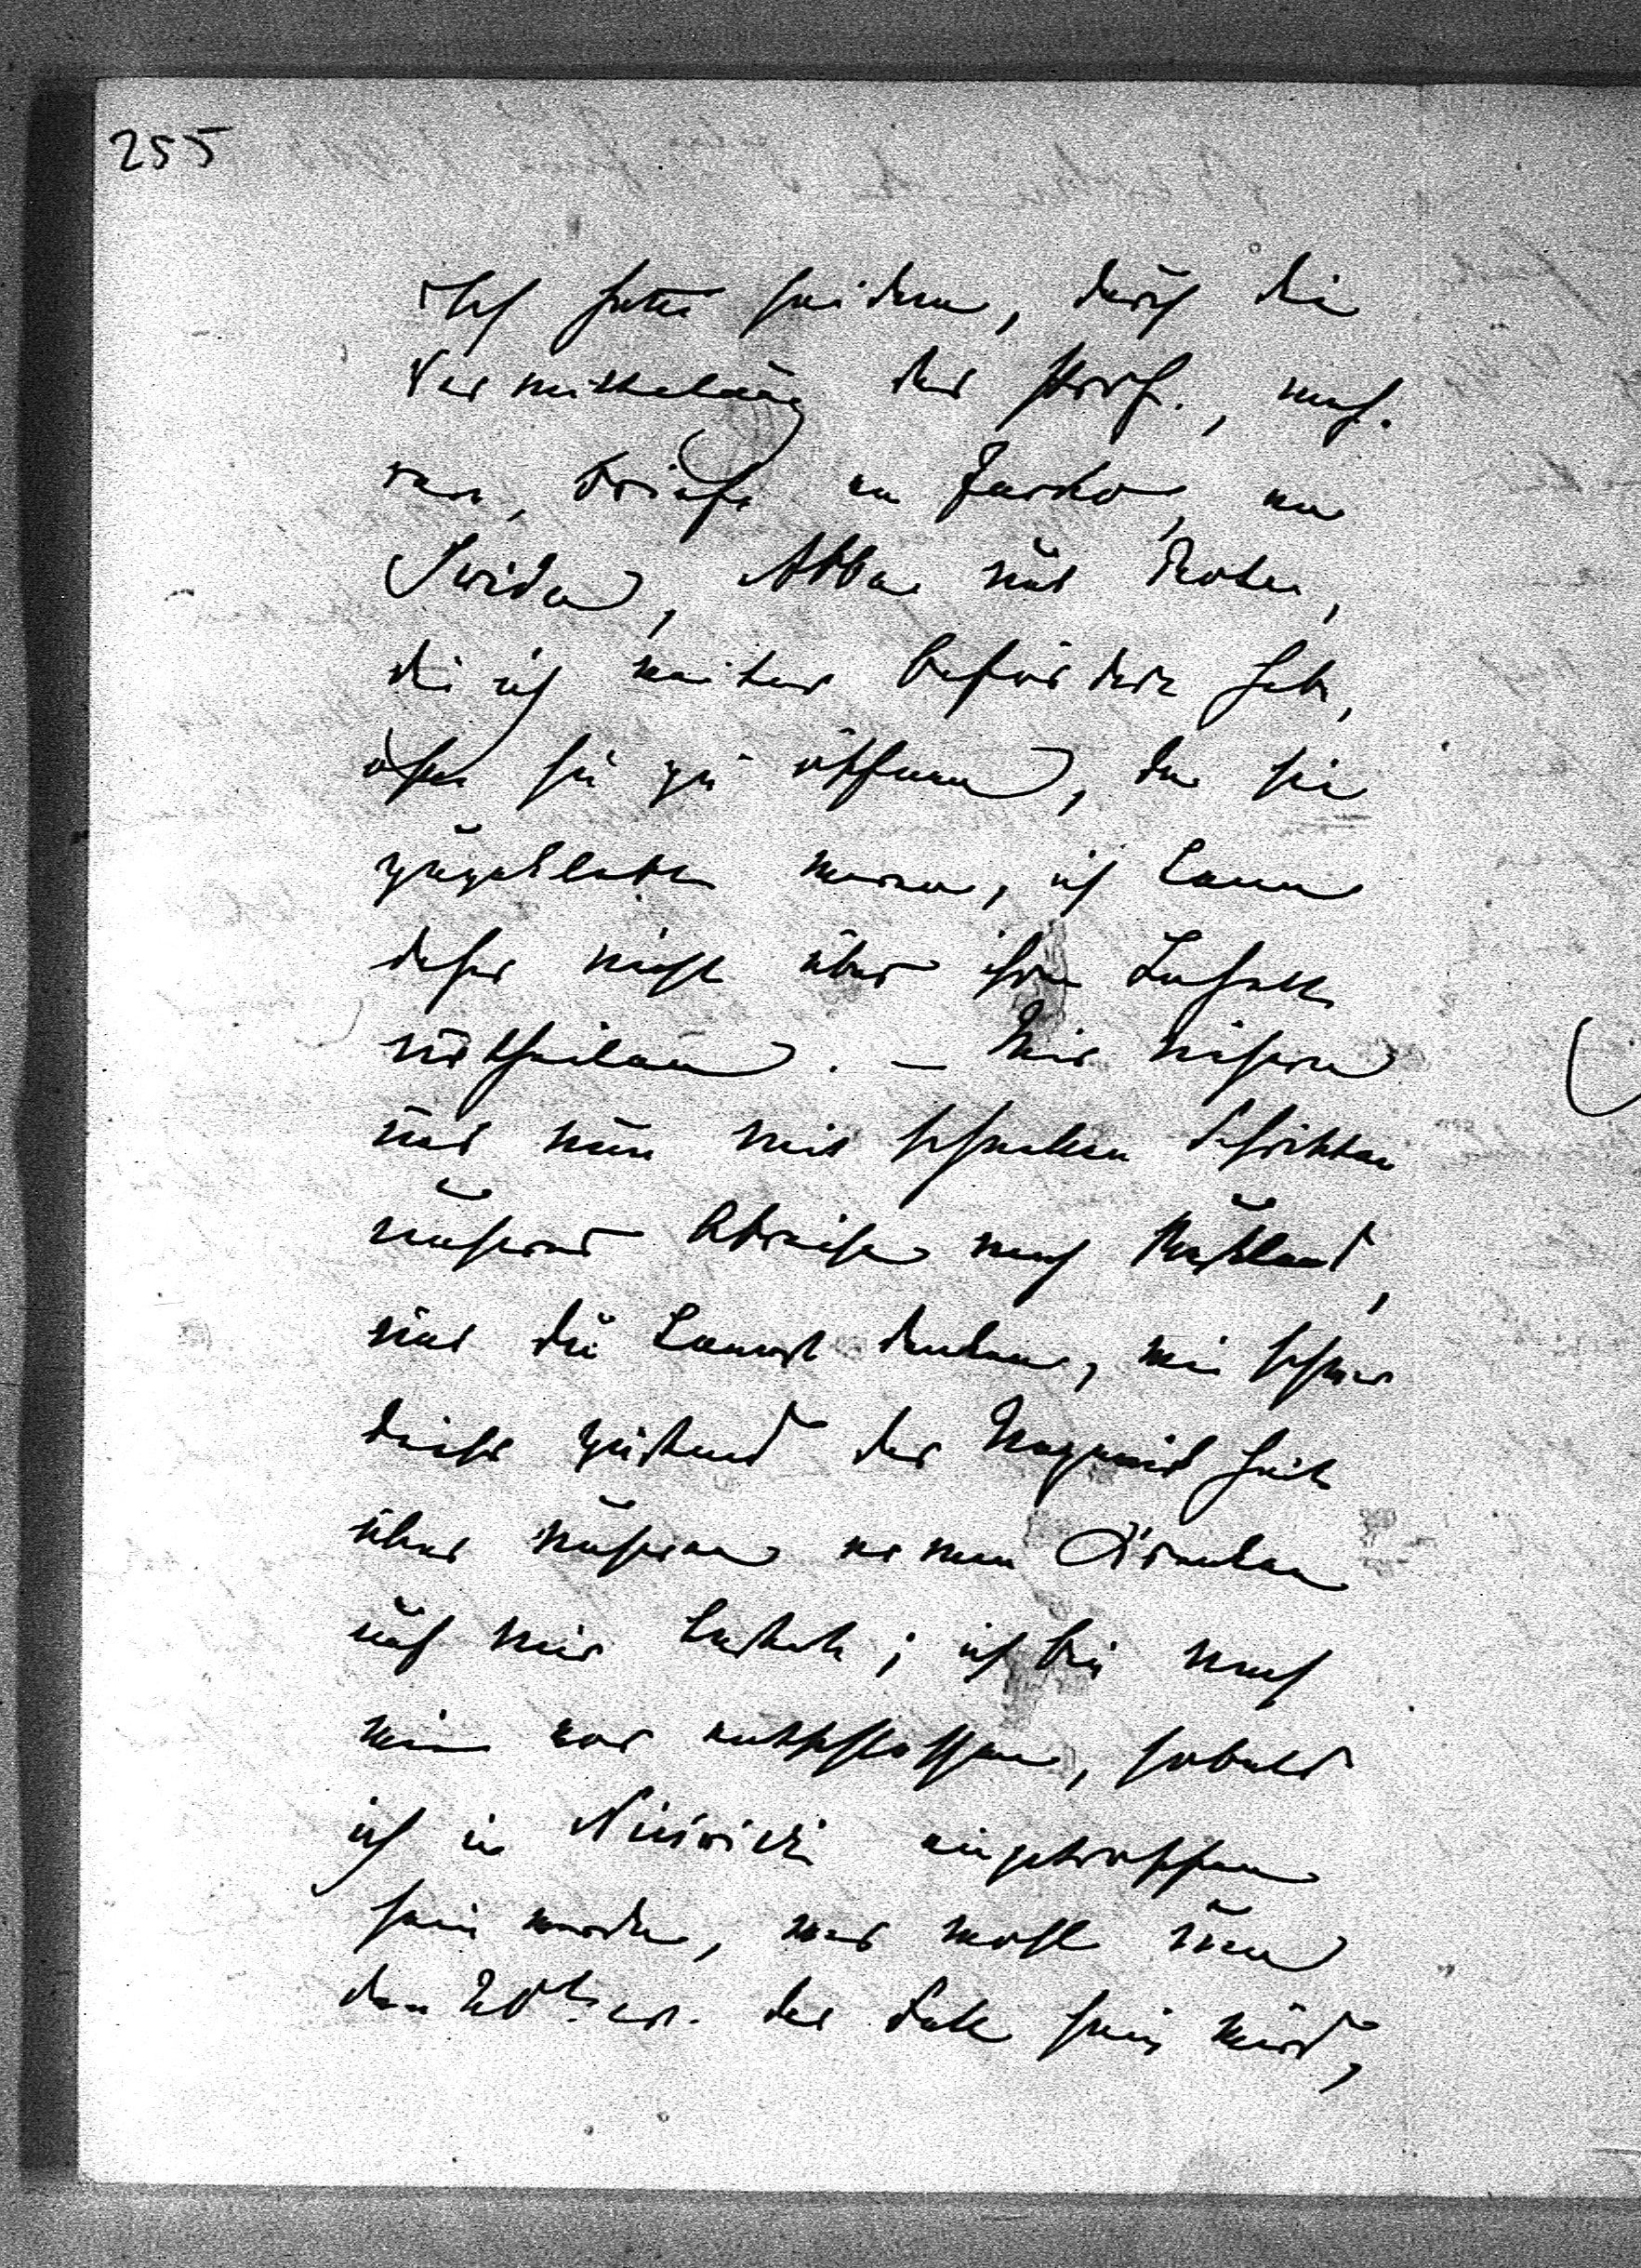 255
Ich hatte seitdem, durch die
Vermittelung der Fürst., meh-
rere, Briefe an Jarko, an
Swida, Abba und Roder,
die ich weiter befördert habe,
ohne sie zu öffnen, da sie
zugeklebt waren, ich kann
daher nicht über ihren Inhalt
urtheilen. – Wir nähern
uns nun mit schnellen Schritten
unserer Abreise nach Rußland,
und Du kannst denken, wie schwer
dieser Zustand der Ungewißheit
über unseren armen Kranken
auf mir lastet; ich bin nach
wie vor entschlossen, sobald
ich in Nieświeź eingetroffen
sein werde, was wohl um
den 20t. cr. der Fall sein wird,